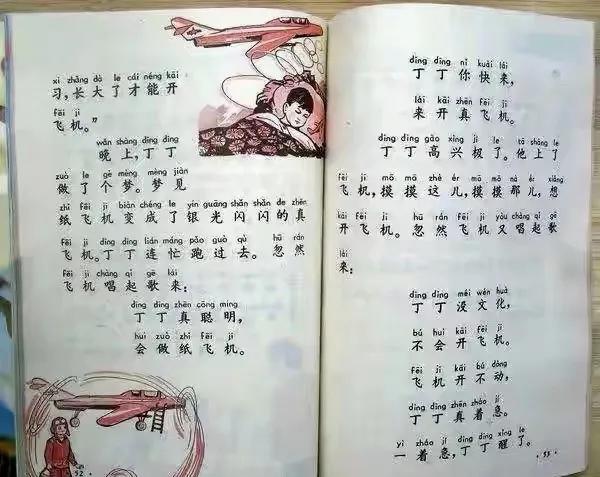 xí zhǎng dà le cái néng kāi
习,长大了才能开
fēi jī
飞机。”
wǎn shàng dīng dīng
晚上,丁丁
zuò le gè mèng mèng jiàn
做了个梦。梦见
zhǐ fēi jī biàn chéng le yín guāng shǎn shǎn de zhēn
纸飞机变成了银光闪闪的真
fēi jī dīng dīng lián máng pǎo guò qù hū rán
飞机。丁丁连忙跑过去。忽然
fēi jī chàng qǐ gē lái
飞机唱起歌来:
dīng dīng zhēn cōng míng
丁丁真聪明,
huì zuò zhǐ fēi jī
会做纸飞机。
52
dīng dīng nǐ kuài lái
丁丁你快来,
lái kāi zhēn fēi jī
来开真飞机。
dīng dīng gāo xìng jí le tā shàng le
丁丁高兴极了。他上了
fēi jī mō mō zhè ér mō mō nà ér xiǎng
飞机,摸摸这儿,摸摸那儿,想
kāi fēi jī hū rán fēi jī yòu chàng qǐ gē
开飞机。忽然飞机又唱起歌
lái
来:
dīng dīng méi wén huà
丁丁没文化,
bú huì kāi fēi jī
不会开飞机。
fēi jī kāi bú dòng
飞机开不动,
dīng dīng zhēn zháo jí
丁丁真着急。
yì zháo jí dīng dīng xǐng le
一着急,丁丁醒了。
53